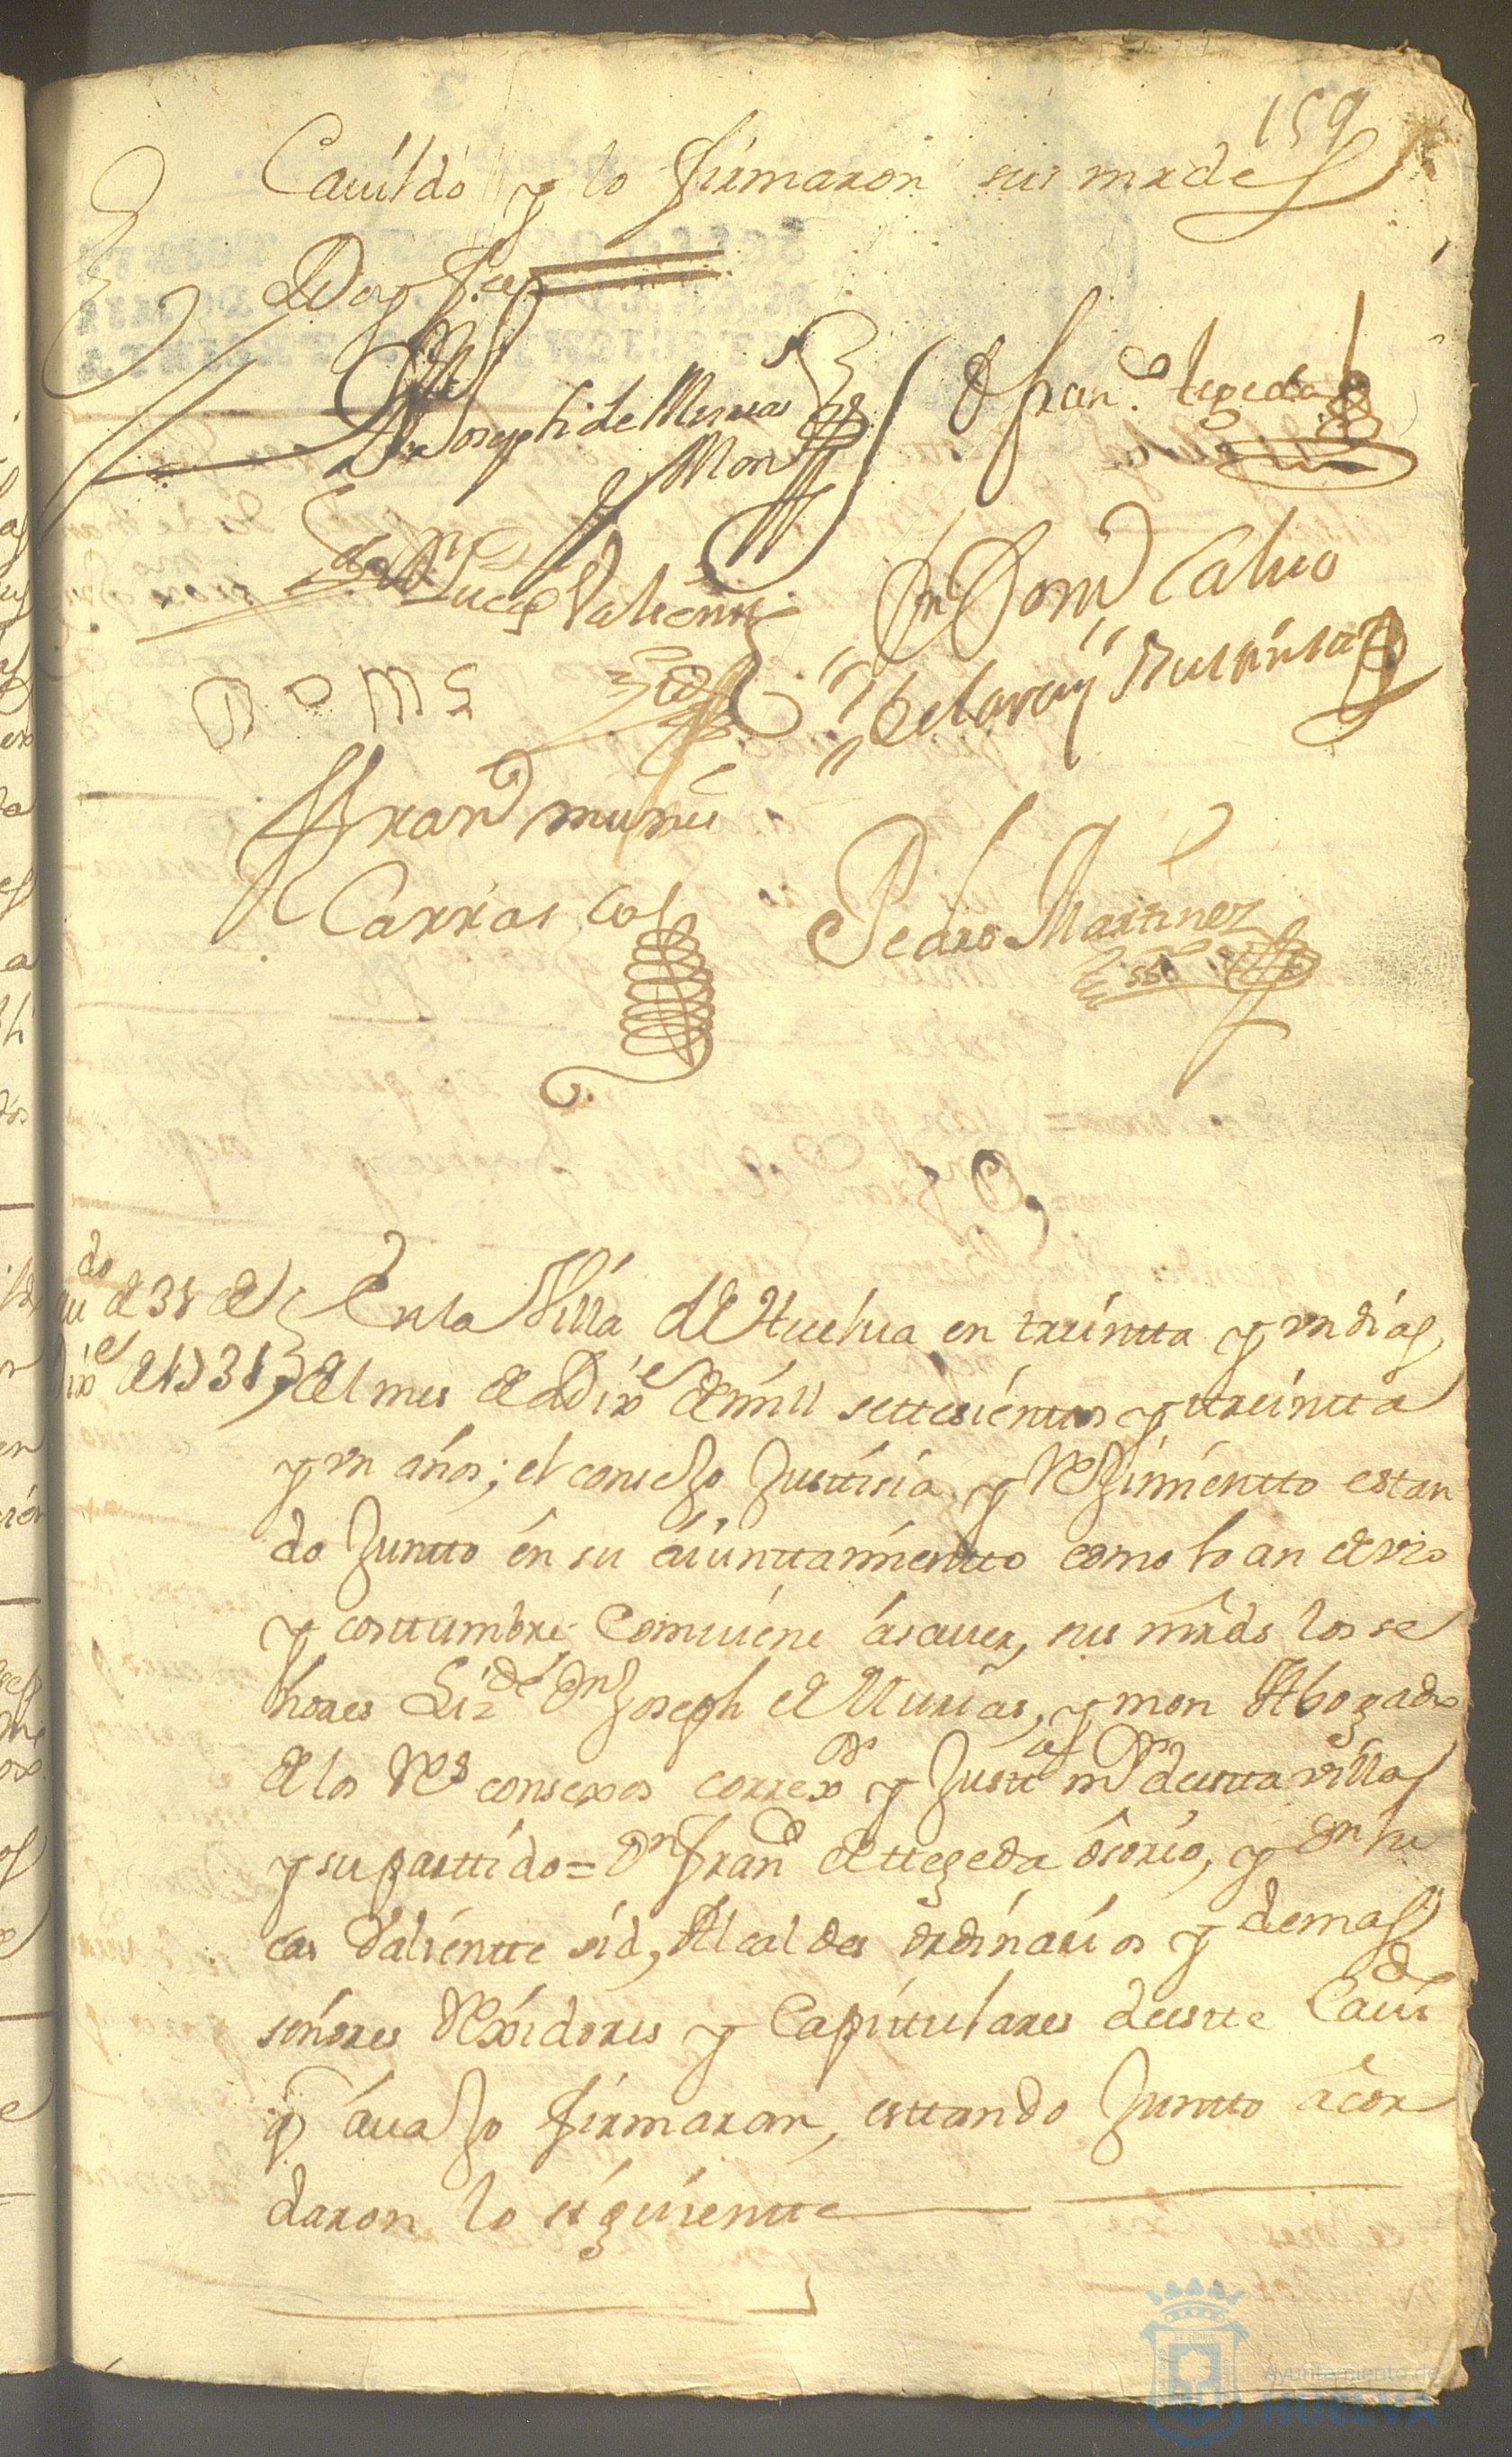 159
Cauildo y lo firmaron sus mrdes
Doy fee
Joseph de Murias
y Mon
Dn Franco tegeda
Dn Lucas Valiente
Sid
Dn Domo Caluo
Franco muñis
Carrasco
Pedro Martinez
ssno
do
Caui de 31 de
Dixe de 1731
En la Villa de Huelua en treintta y un dias
del mes de Dixe de mill settesienttos y treintta
y un años; el consejo Justtisia y Rejimientto estan
do Juntto en su aiunttamientto como lo an de vso
y costtumbre Comuiene ásauer, sus mrds los se
ñores Lizdo Dn Joseph de Murias, y mon Abogado
de los Rs consexos correxor y Justta mor destta villa
y su parttido = Dn Franco de ttegeda osorio, y Dn lu
cas Valientte sid, Alcaldes ordinarios y demas
señores Rexidores y Capittulares destte Cauido
q auajo firmaran, esttando Juntto acor
daron lo siguientte
Ayuntamiento de
HUELVA